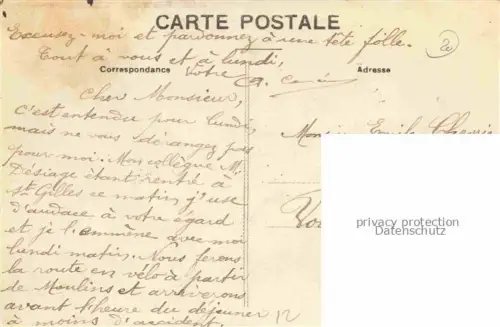 CARTE POSTALE
Excusez-moi et pardonnez à une tête folle.
Tout à vous et à lundi,
Votre
Correspondance
Adresse
Cher Monsieur,
C'est entendu pour lundi,
mais ne vous dérangez pas
pour moi. Mon collègue Mr
Désiage étant rentré à
St Gilles ce matin, j'use
d'audace à votre égard
et je l'emmène avec moi
lundi matin. Nous ferons
la route en vélo à partir
de Moulins et arriverons
avant l'heure du déjeuner
à moins d'accident.
Monsieur Emile
privacy protection
Datenschutz
12